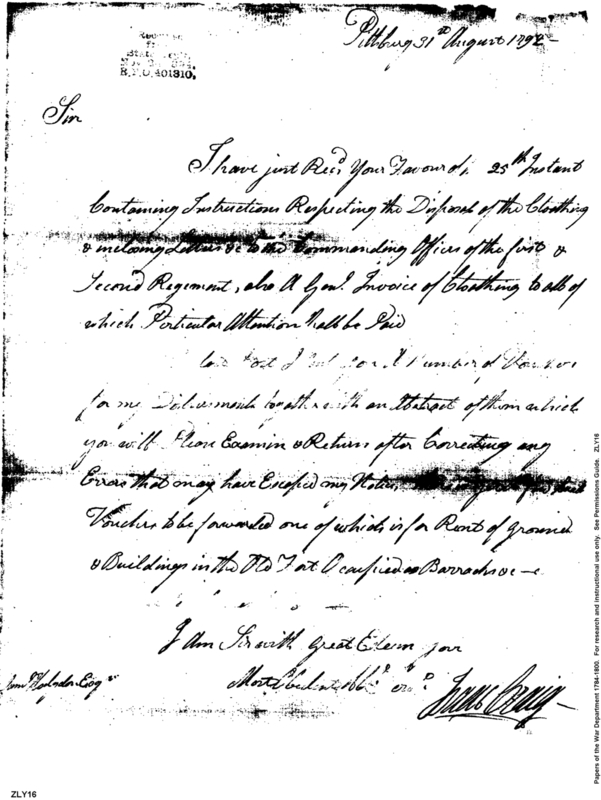 R.P.O. 401310.
Pittburg 31st August 1792 -
Sir
I have just Recd Your Favour of 25th Instant
Containing Instructions Respecting the Disposal of the Cloathing
& inclosing Letters &c to the Commanding Officer of the first &
Second Regiment, also A Genl Invoice of Cloathing to all of
which Perticular Attention shall be Paid
last Post I A Number of
for my together with an Abstract of them which
you will Please Examin & Return after Correcting any
Errors that may have Escaped my Notice,
Vouchers to be forwarded one of which is for Rent of Ground
& Buildings in the Old Fort Occupied as Barracks &c -
I Am Sir with Great Esteem your
Most Obedient
Isaac Craig -
Esqr
ZLY16
Papers of the War Department 1784-1800. For research and instructional use only. See Permissions Guide. ZLY16